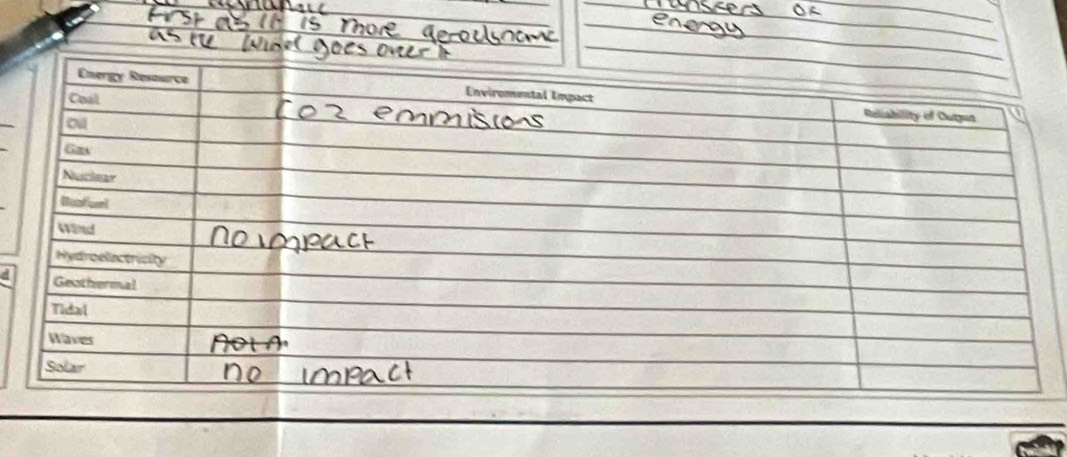 transfers of
first as it is more aerodynamic
energy
as the wind goes over it
Energy Resource
Enviromental Impact
Reliability of Output
Coal
Co2 emmisions
Oil
Gas
Nuclear
Biofuel
Wind
no impact
Hydroelectricity
Geothermal
Tidal
Waves
Solar
no impact